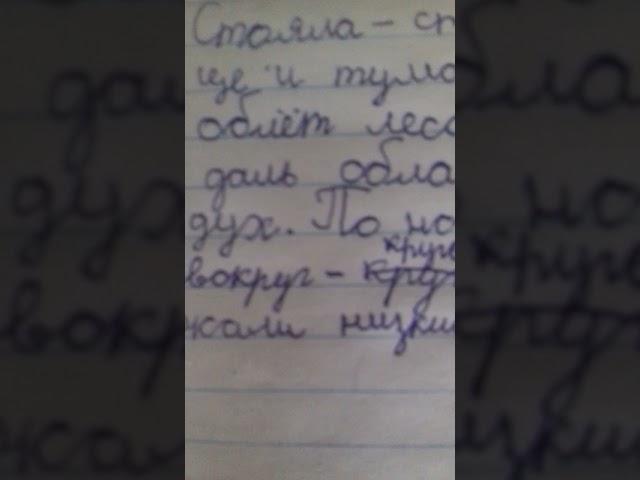 Стояла – ст
ще и тума
облёт лесо
даль обла
дух. По но
круго
вокруг – кру
жали низки